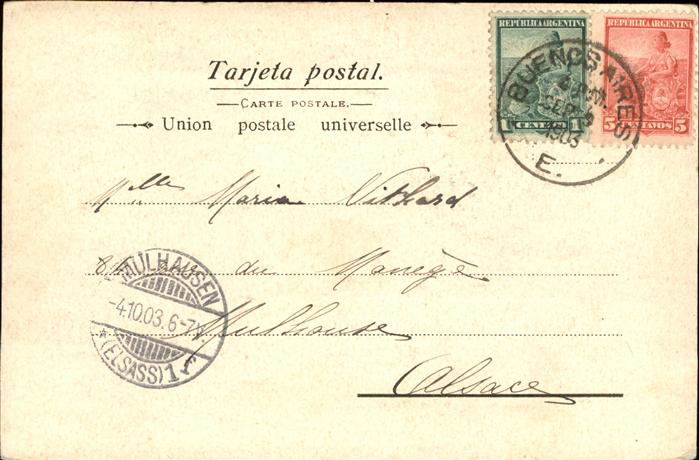 Tarjeta postal.
CARTE POSTALE.
Union postale universelle
REPÚBLICA ARGENTINA
1 CENTAVO 1
REPÚBLICA ARGENTINA
5 CENTAVOS 5
BUENOS AIRES
SEP
1903
E.
Mlle Maria
du Manège
Mulhouse
Alsace
MULHAUSEN
-4.10.03. 6-7
*(ELSASS) 1